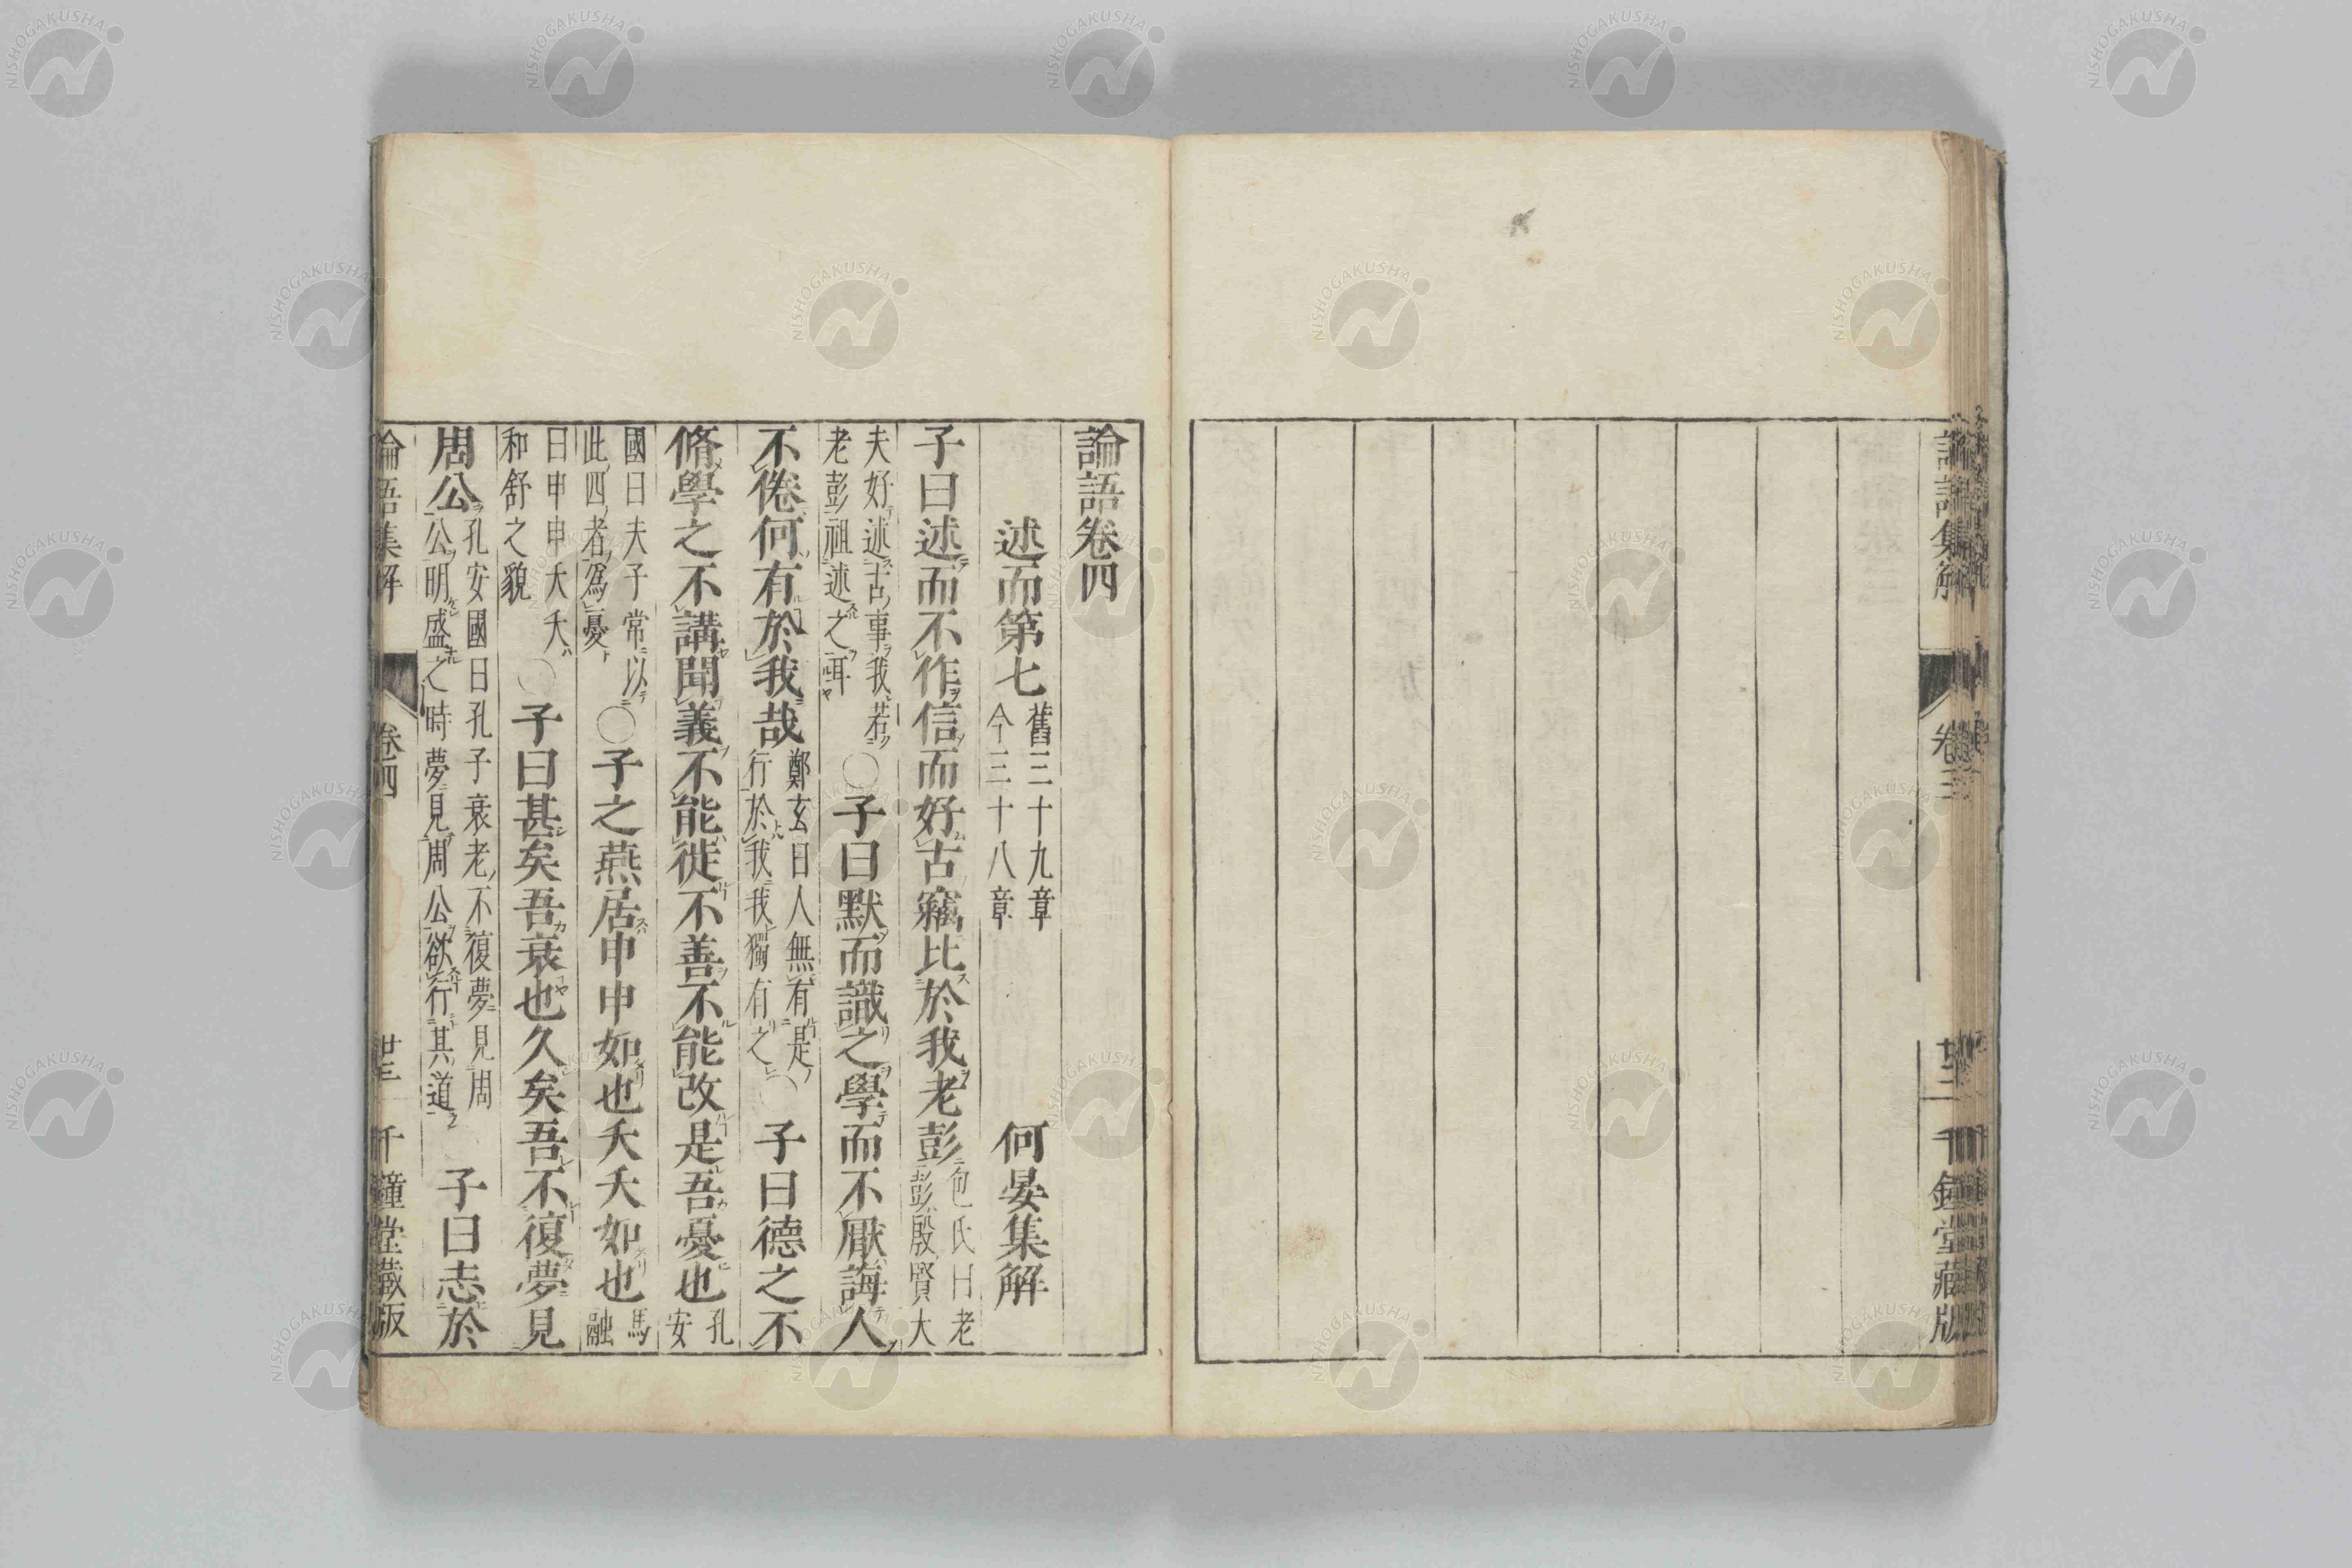 論語集解 卷三 千鍾堂藏版
論語卷四
述而第七 舊三十九章 今三十八章 何晏集解
子曰述而不作信而好古竊比於我老彭 包氏曰老 彭殷賢大
夫好述古事我若 老彭祖述之耳 ○子曰默而識之學而不厭誨人
不倦何有於我哉 鄭玄曰人無有是 行於我我獨有之 ○子曰德之不
脩學之不講聞義不能徙不善不能改是吾憂也 孔 安
國曰夫子常以 此四者爲憂 ○子之燕居申申如也夭夭如也 馬 融
曰申申夭夭 和舒之貌 ○子曰甚矣吾衰也久矣吾不復夢見
周公 孔安國曰孔子衰老不復夢見周 公明盛之時夢見周公欲行其道 子曰志於
論語集解 卷四 千鐘堂藏版
NISHOGAKUSHA